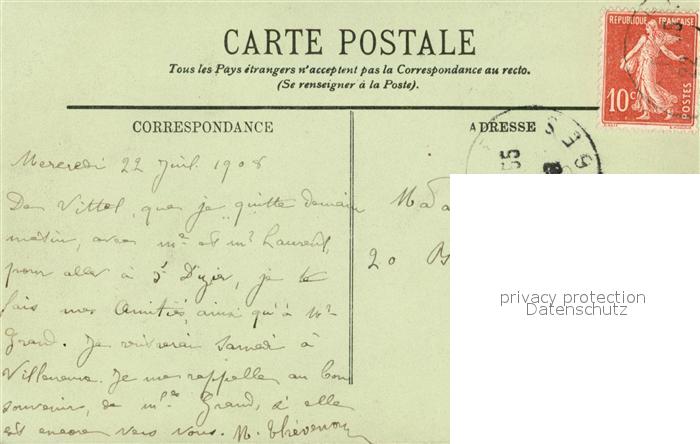 CARTE POSTALE
Tous les Pays étrangers n'acceptent pas la Correspondance au recto.
(Se renseigner à la Poste).
RÉPUBLIQUE FRANÇAISE
10c
POSTES
CORRESPONDANCE
ADRESSE
Mercredi 22 Juil. 1908
De Vittel, que je quitte demain
matin, avec Me et Mr Laurent,
pour aller à St Dizier, je te
fais mes amitiés, ainsi qu'à Mr
Grand. Je reviserai samedi à
Villeneuve. Je me rappelle au bon
souvenir, de Mlle Grand, si elle
est encore vers vous. M. Thévenon
Mada
20 B
GES
55
privacy protection
Datenschutz